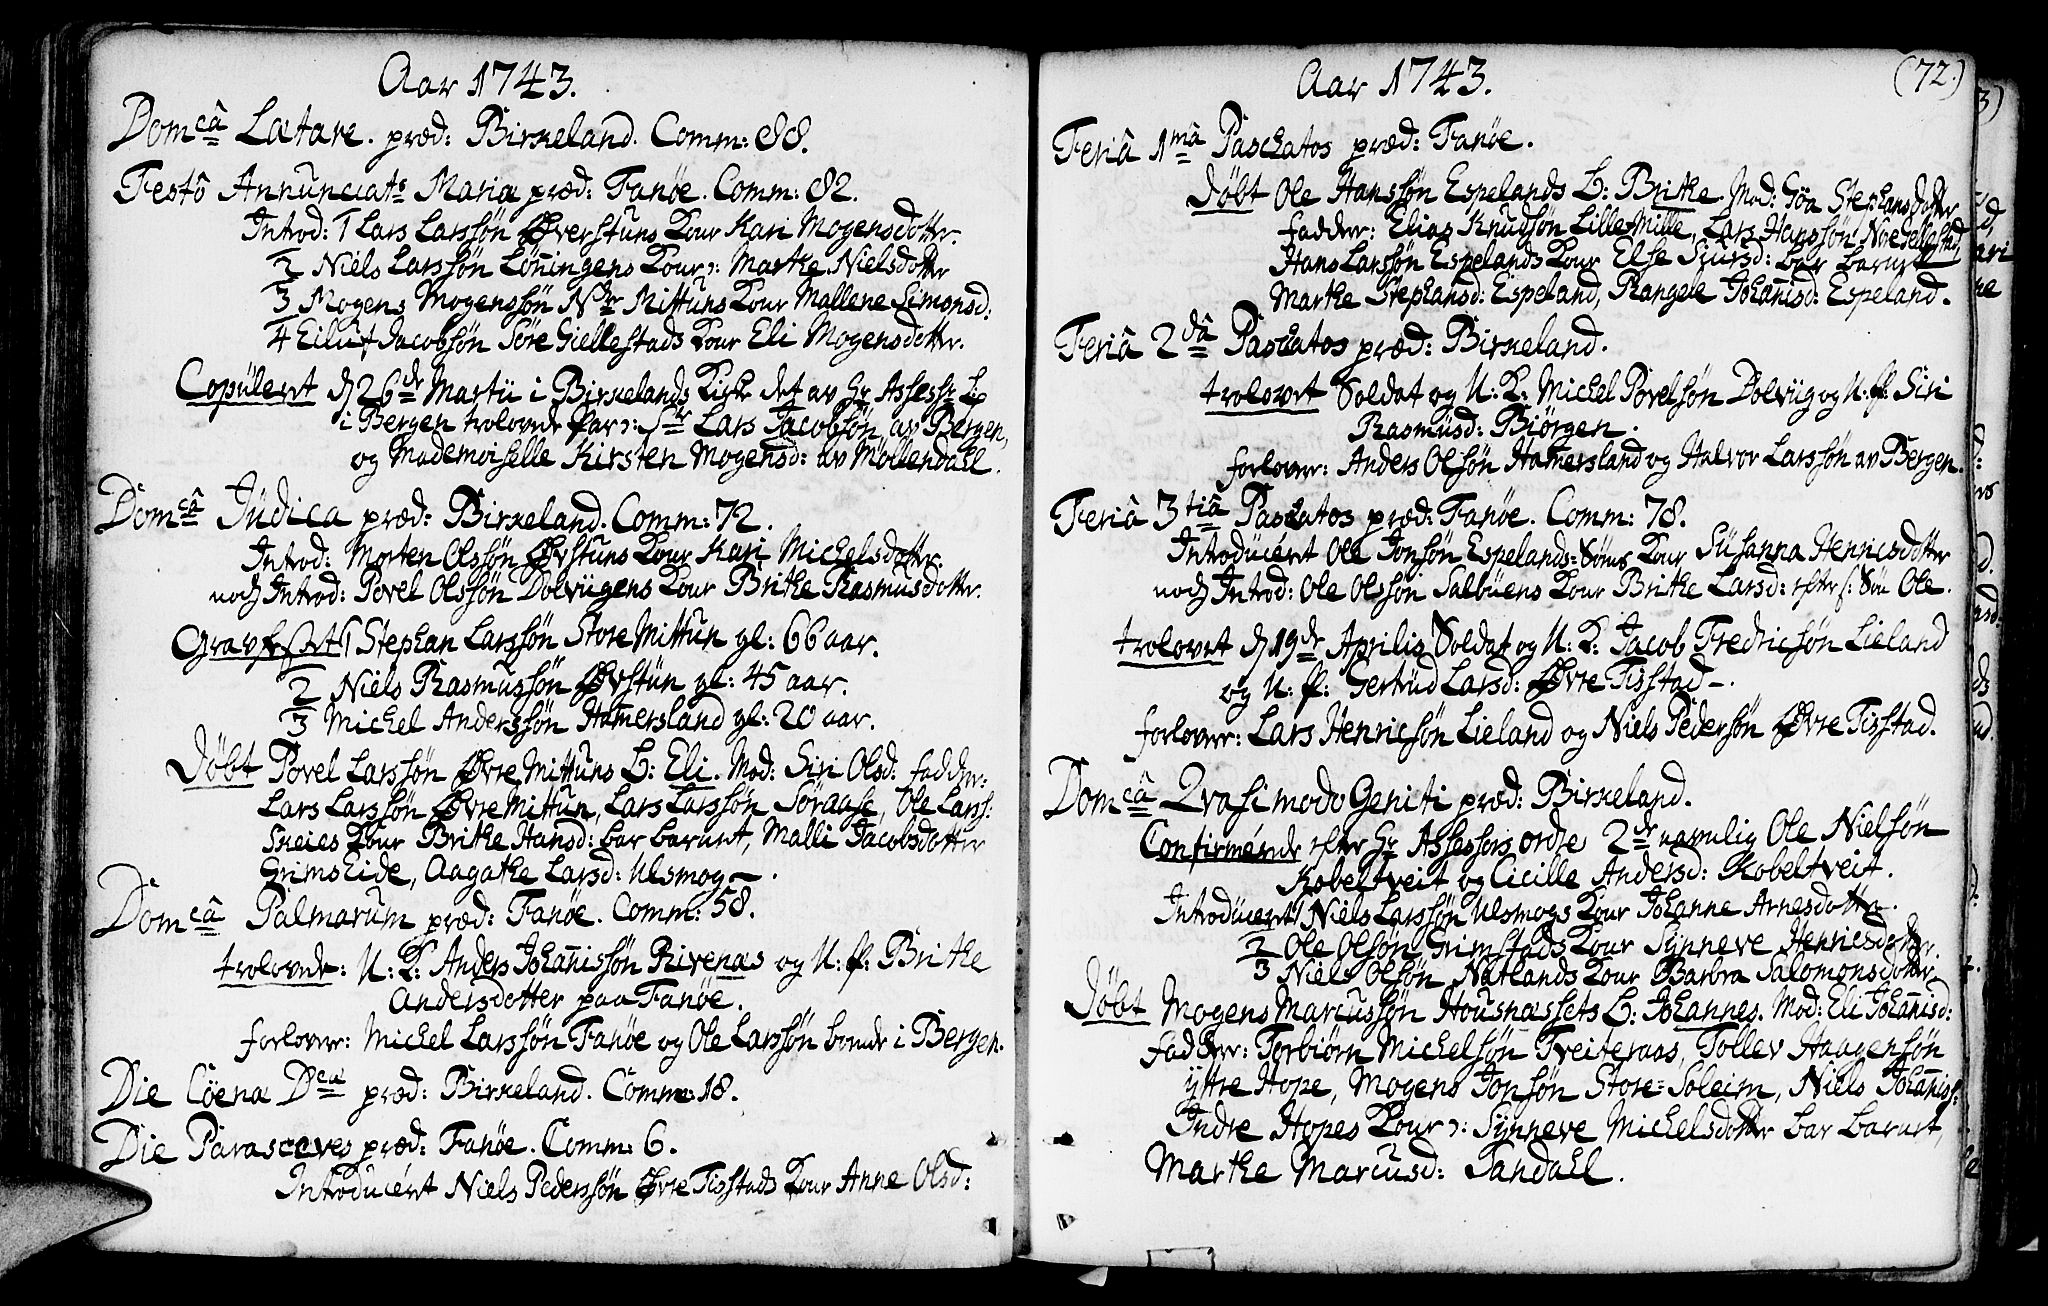 Aar 1743.
Domcâ Lætare. præd: Birkeland. Comm: 88.
Festô Annunciats Mariæ præd: Fanøe. Comm: 82.
Introd: 1 Lars Larssøn Øverstuns Kour Kari Mogensdotter.
2 Niels Larssøn Løningens Kour ɔ: Marthe Nielsdotter
3 Mogens Mogenssøn Ndr Mittuns Kour Mallene Simonsd:
4 Eiluf Jacobsøn Søre Giellestads Kour Eli Mogensdotter.
Copulert d 26de Martii i Birkelands Kirke det av Hr Assessr
i Bergen trolovede Par ɔ: Sr Lars Jacobsøn av Bergen,
og Mademoiselle Kirsten Mogensd: av Møllendahl.
Domcâ Judica præd: Birkeland. Comm: 72.
Introd: Morten Olssøn Øvstuns Kour Kari Michelsdotter.
noch Introd: Povel Olssøn Dolviigens Kour Brithe Rasmusdotter.
Gravfæstet 1 Stephan Larssøn Store Mittun gl: 66 aar.
2 Niels Rasmussøn Øvstun gl: 45 aar.
3 Michel Anderssøn Hamersland gl: 20 aar.
Døbt Povel Larssøn Øvre Mittuns B: Eli. Mod: Siri Olsd: fadder:
Lars Larssøn Øvre Mittun, Lars Larssøn Søraase, Ole Larss:
Skeies Kour Brithe Hansd: bar barnet, Malli Jacobsdotter
Grimseide, Aagathe Larsd: Ulsmog.
Domcâ Palmarum præd: Fanøe. Comm: 58.
trolovede: U: K: Anders Johanissøn Rivenæs og U: p: Brithe
Andersdotter paa Fanøe.
forlover: Michel Larssøn Fanøe og Ole Larssøn boende i Bergen.
Die Cöenæ Dcæ præd: Birkeland. Comm: 18.
Die Parasceves præd: Fanøe. Comm: 6.
Introducert Niels Pederssøn Øvre Tisstads Kour Anne Olsd:
Aar 1743. (72.)
Feriâ 1mâ Paschatos præd: Fanøe.
Døbt Ole Hanssøn Espelands B: Brithe. Mod: Gøa Stephansdotter
fadder: Elias Knudsøn Lille Milde, Lars Hanssøn
Hans Larssøn Espelands Kour Else Siursd: bar barnet
Marthe Stephansd: Espeland, Rangele Johanisd: Espeland.
Feriâ 2dâ Paschatos præd: Birkeland.
trolovet Soldat og U: K: Michel Povelsøn Dolviig og U: p: Siri
Rasmusd: Biørgen.
forlover: Anders Olsøn Hamersland og Halvor Larssøn av Bergen.
Feriâ 3tiâ Paschatos præd: Fanøe. Comm: 78.
Introducert Ole Jonsøn Espelands: Søms Kour Susanna Henricsdotter
noch Introd: Ole Olssøn Salbuens Kour Brithe Larsd: efter s: Søn Ole.
trolovet d 19de Aprilis Soldat og U: K: Jacob Fredricsøn Lieland
og U: p: Gertrud Larsd: Øvre Tisstad.
forlover: Lars Henricsøn Lieland og Niels Pedersøn Øvre Tisstad.
Domcâ Qvasimodo Geniti præd: Birkeland.
Confirmerede efter Hr Assessors ordre 2de navnlig Ole Nielsøn
Kobeltveit og Cicille Andersd: Kobeltveit.
Introducert 1 Niels Larssøn Ulsmogs Kour Johanne Arnesdotter.
2 Ole Olsøn Grimstads Kour Synneve Henricsdotter.
3 Niels Olsøn Natlands Kour Barbra Salomonsdotter.
Døbt Mogens Marcussøn Housnæssets B: Johannes. Mod: Eli Johanisd:
fadder: Torbiørn Michelsøn Tveiteraas, Tollev Haagensøn
yttre Hope, Mogens Jonsøn Store: Soleim, Niels Johaniss:
Indre Hopes Kour ɔ: Synneve Michelsdotter bar barnet,
Marthe Marcusd: Sandahl.